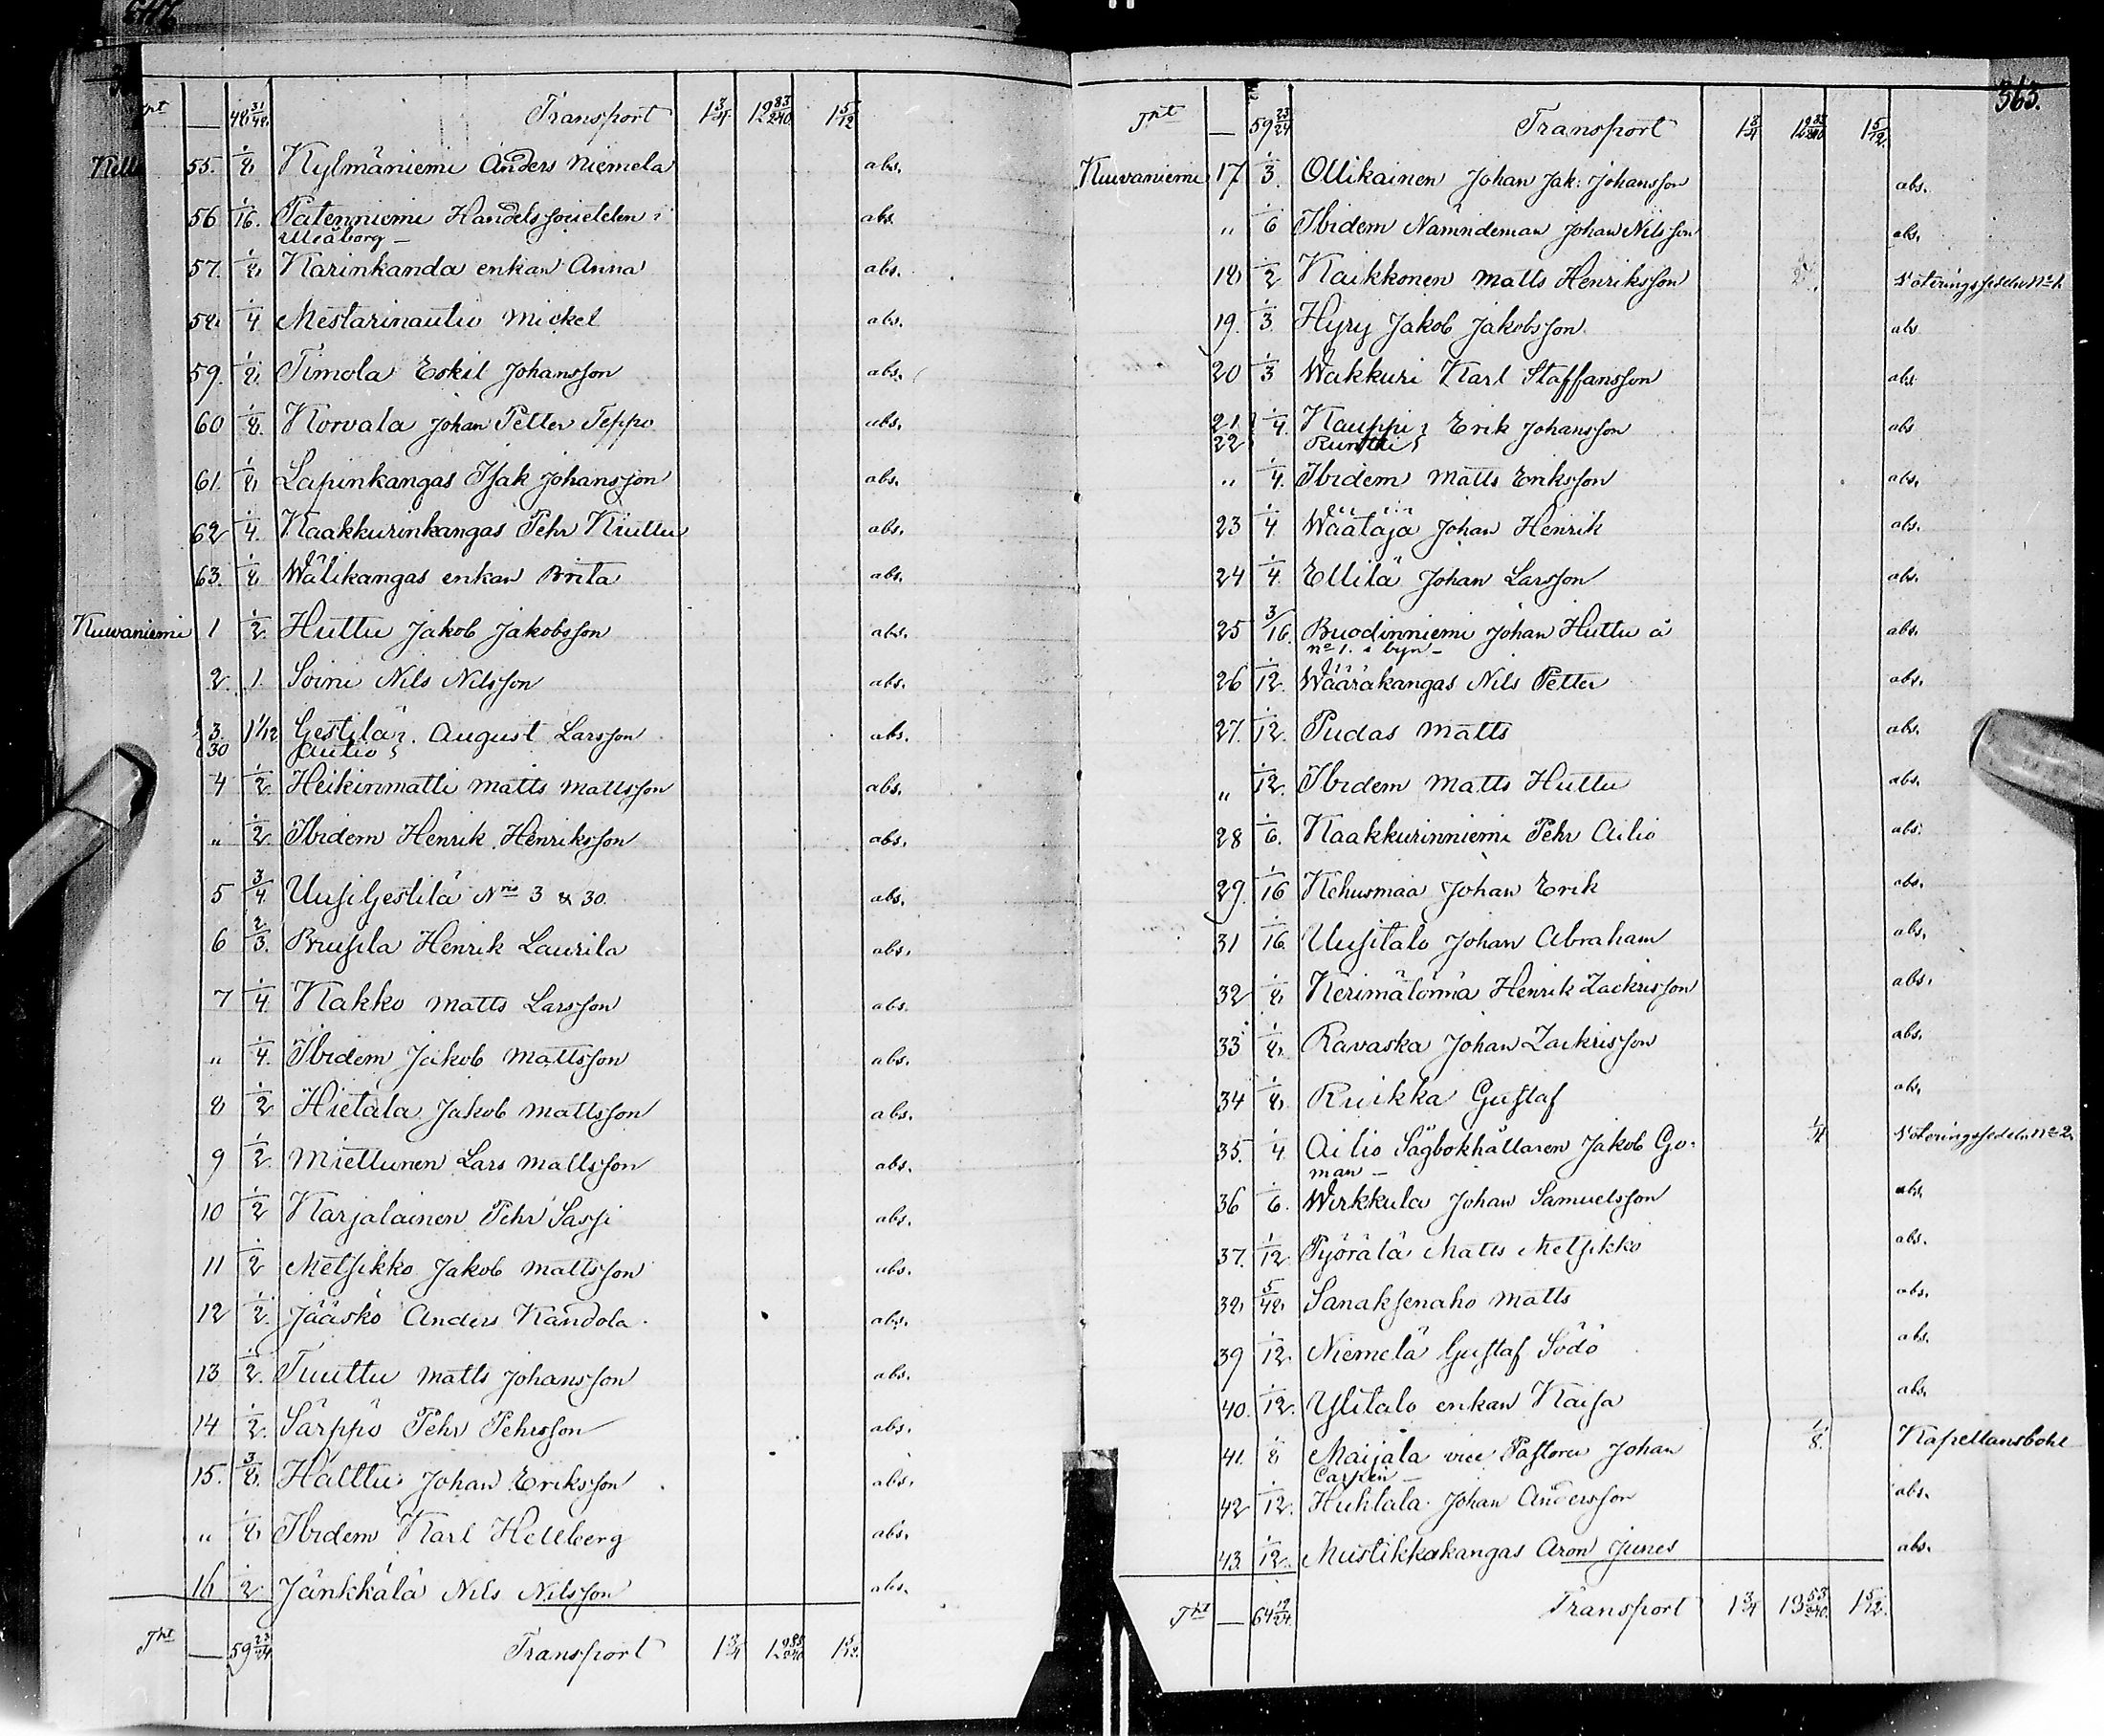 Trpt — 48 31/48 Transport 1 3/4 12 83/240 1 5/12
55. 1/8 Kylmäniemi Anders Niemela abs.
56 1/16. Patenniemi Handelssocieteten i abs.
Uleåborg —
57. 1/8 Karinkanda enkan Anna abs.
58 1/4 Mestarinautio Mickel abs.
59. 1/8 Timola Eskil Johansson abs.
60 1/8. Korvala Johan Petter Teppo abs.
61. 1/8 Lapinkangas Isak Johansson abs.
62 1/4. Kaakkurinkangas Pehr Kiuttu abs.
63. 1/8 Wälikangas enkan Brita abs.
Kuivaniemi 1 1/2 Huttu Jakob Jakobsson abs.
2. 1 Soini Nils Nilsson abs.
3. 1 1/12 Gestilä August Larsson abs.
30 Jautio
4 1/2 Heikinmatti Matts Mattsson abs.
„ 1/2 Ibidem Henrik Henriksson abs.
5 3/4. Uusi Gestilä Nris 3 & 30. abs.
6 2/3. Brusila Henrik Laurila abs.
7 1/4 Kakko Matts Larsson abs.
„ 1/4. Ibidem Jakob Mattsson abs.
8 1/2 Hietala Jakob Mattsson abs.
9 1/2 Miettunen Lars Mattsson abs.
10 1/2 Karjalainen Pehr Sassi abs.
11 1/2 Metsikko Jakob Mattsson abs.
12 1/2. Jääskö Anders Kandola. abs.
13 1/2. Tuuttu Matts Johansson abs.
14 1/2. Särppö Pehr Pehrsson abs.
15. 3/8. Halttu Johan Eriksson abs.
„ 1/8 Ibidem Karl Hellberg abs.
16 1/2 Jänkkälä Nils Nilsson abs.
Trt — 59 23/24 Transport 1 3/4 12 83/240 1 5/12
363.
Trt — 59 23/24 Transport 1 3/4 12 83/240 1 5/12.
Kuivaniemi 17 1/3. Ollikainen Johan Jak: Johansson abs.
„ 1/6 Ibidem Nämndeman Johan Nilsson abs.
18 1/2 Kaikkonen Matts Henriksson Noteringssedeln No 1.
19. 1/3. Hyry Jakob Jakobsson. abs
20 1/3 Wakkuri Karl Staffansson abs
21 1/4. Kauppi Erik Johansson abs
22
„ 1/4. Ibidem Matts Eriksson abs.
23 1/4 Wäätäjä Johan Henrik abs.
24 1/4. Ellilä Johan Larsson abs.
25 3/16. Buodinniemi Johan Huttu å abs.
No 1. i byn —
26 1/12. Wääräkangas Nils Petter abs.
27. 1/12. Pudas Matts abs.
„ 1/12. Ibidem Matts Huttu abs.
28 1/6. Kaakkurinniemi Pehr Ailio abs.
29. 1/16 Kehusmaa Johan Erik abs.
31 1/16 Uusitalo Johan Abraham abs.
32 1/8 Kerimälönnä Henrik Zackrisson abs.
33 1/8 Ravaska Johan Zackrisson abs.
34 1/8 Ruikka Gustaf abs,
35. 1/4 Ailio Sågbokhållaren Jakob Go- 1/4 Noteringssedeln No 2.
man —
36 1/6. Wirkkula Johan Samuelsson abs.
37. 1/12 Pyörälä Matts Metsikko abs.
38 5/48 Sanaksenaho Matts abs.
39 1/12. Niemelä Gustaf Södö abs.
40. 1/12. Ylitalo enkan Kaisa abs.
41. 1/8 Maijala vice Pastorn Johan 1/8. Kapellansbohl
42 1/12. Huhtala Johan Andersson abs.
43. 1/12. Mustikkakangas Aron Junes abs.
Trt — 64 12/24 Transport 1 3/4 13 53/240. 1 5/12.